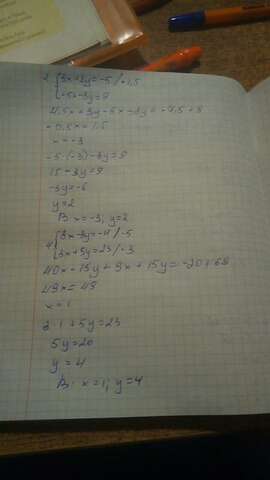 3x+2y=-5 /·1,5
-5x-3y=9
4,5x+3y-5x-3y=-7,5+9
-0,5x=1,5
x=-3
-5·(-3)-3y=9
15-3y=9
-3y=-6
y=2
В: x=-3, y=2
8x-3y=-4 /·5
3x+5y=23 /·3
40x-15y+9x+15y=-20+69
49x=49
x=1
3·1+5y=23
5y=20
y=4
В: x=1; y=4